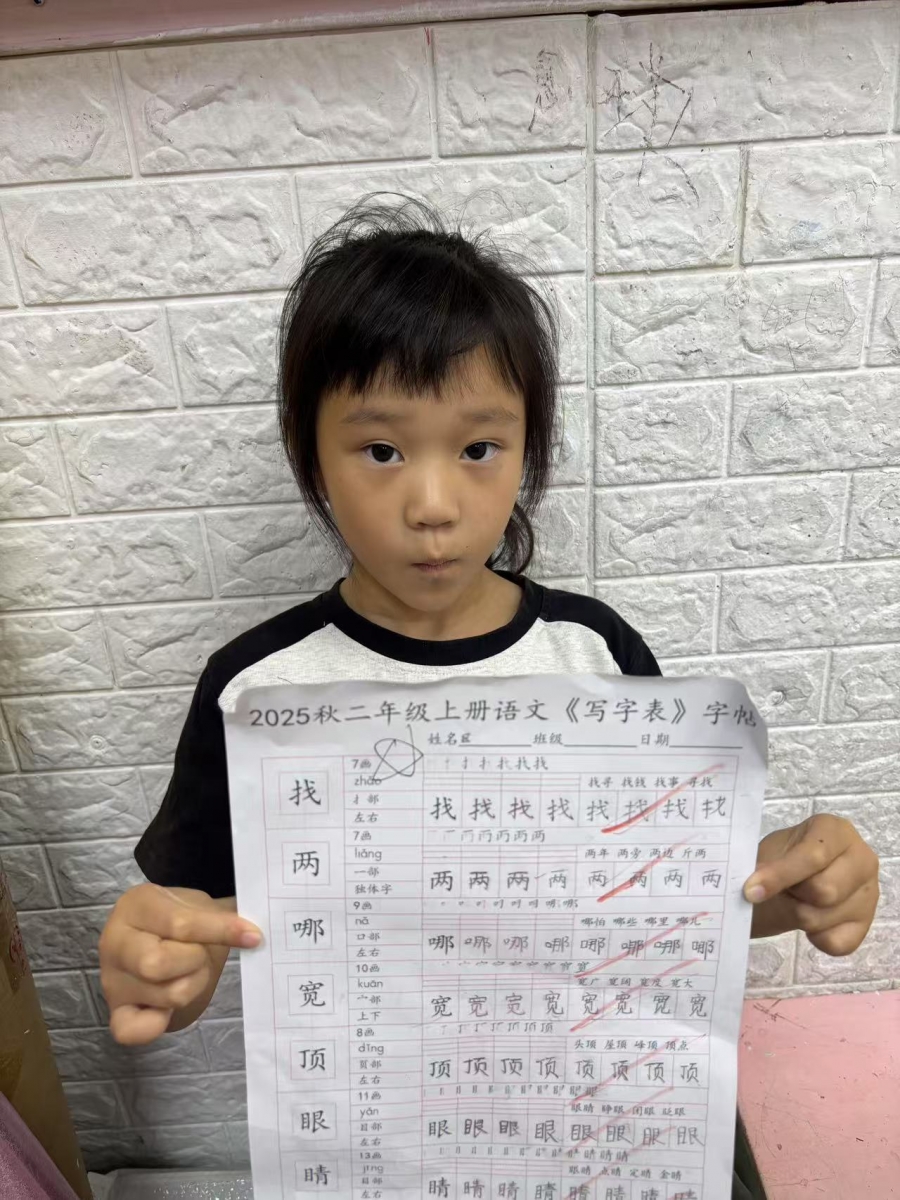 2025秋二年级上册语文《写字表》字帖
姓名 班级 日期
找
7画
zhǎo
扌部
左右
找寻 找钱 找事 寻找
找 找 找 找 找 找 找 找
两
7画
liǎng
一部
独体字
两年 两旁 两边 斤两
两 两 两 两 两 两 两 两
哪
9画
nǎ
口部
左右
哪怕 哪些 哪里 哪儿
哪 哪 哪 哪 哪 哪 哪 哪
宽
10画
kuān
宀部
上下
宽广 宽阔 宽度 宽大
宽 宽 宽 宽 宽 宽 宽 宽
顶
8画
dǐng
页部
左右
头顶 屋顶 峰顶 顶点
顶 顶 顶 顶 顶 顶 顶 顶
眼
11画
yǎn
目部
左右
眼睛 睁眼 闭眼 眨眼
眼 眼 眼 眼 眼 眼 眼 眼
睛
13画
jīng
目部
左右
眼睛 点睛 定睛 金睛
睛 睛 睛 睛 睛 睛 睛 睛